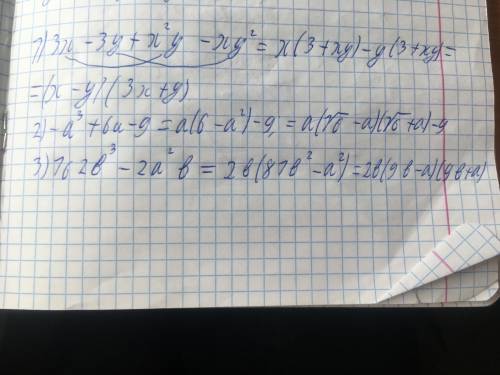 1) 3x - 3y + x²y - xy² = x(3+xy) - y(3+xy) =
= (x - y)(3x+y)
2) -a³ + 6a - 9 = a(6 - a²) - 9 = a(√6 - a)(√6 + a) - 9
3) 162b³ - 2a²b = 2b(81b² - a²) = 2b(9b - a)(9b + a)